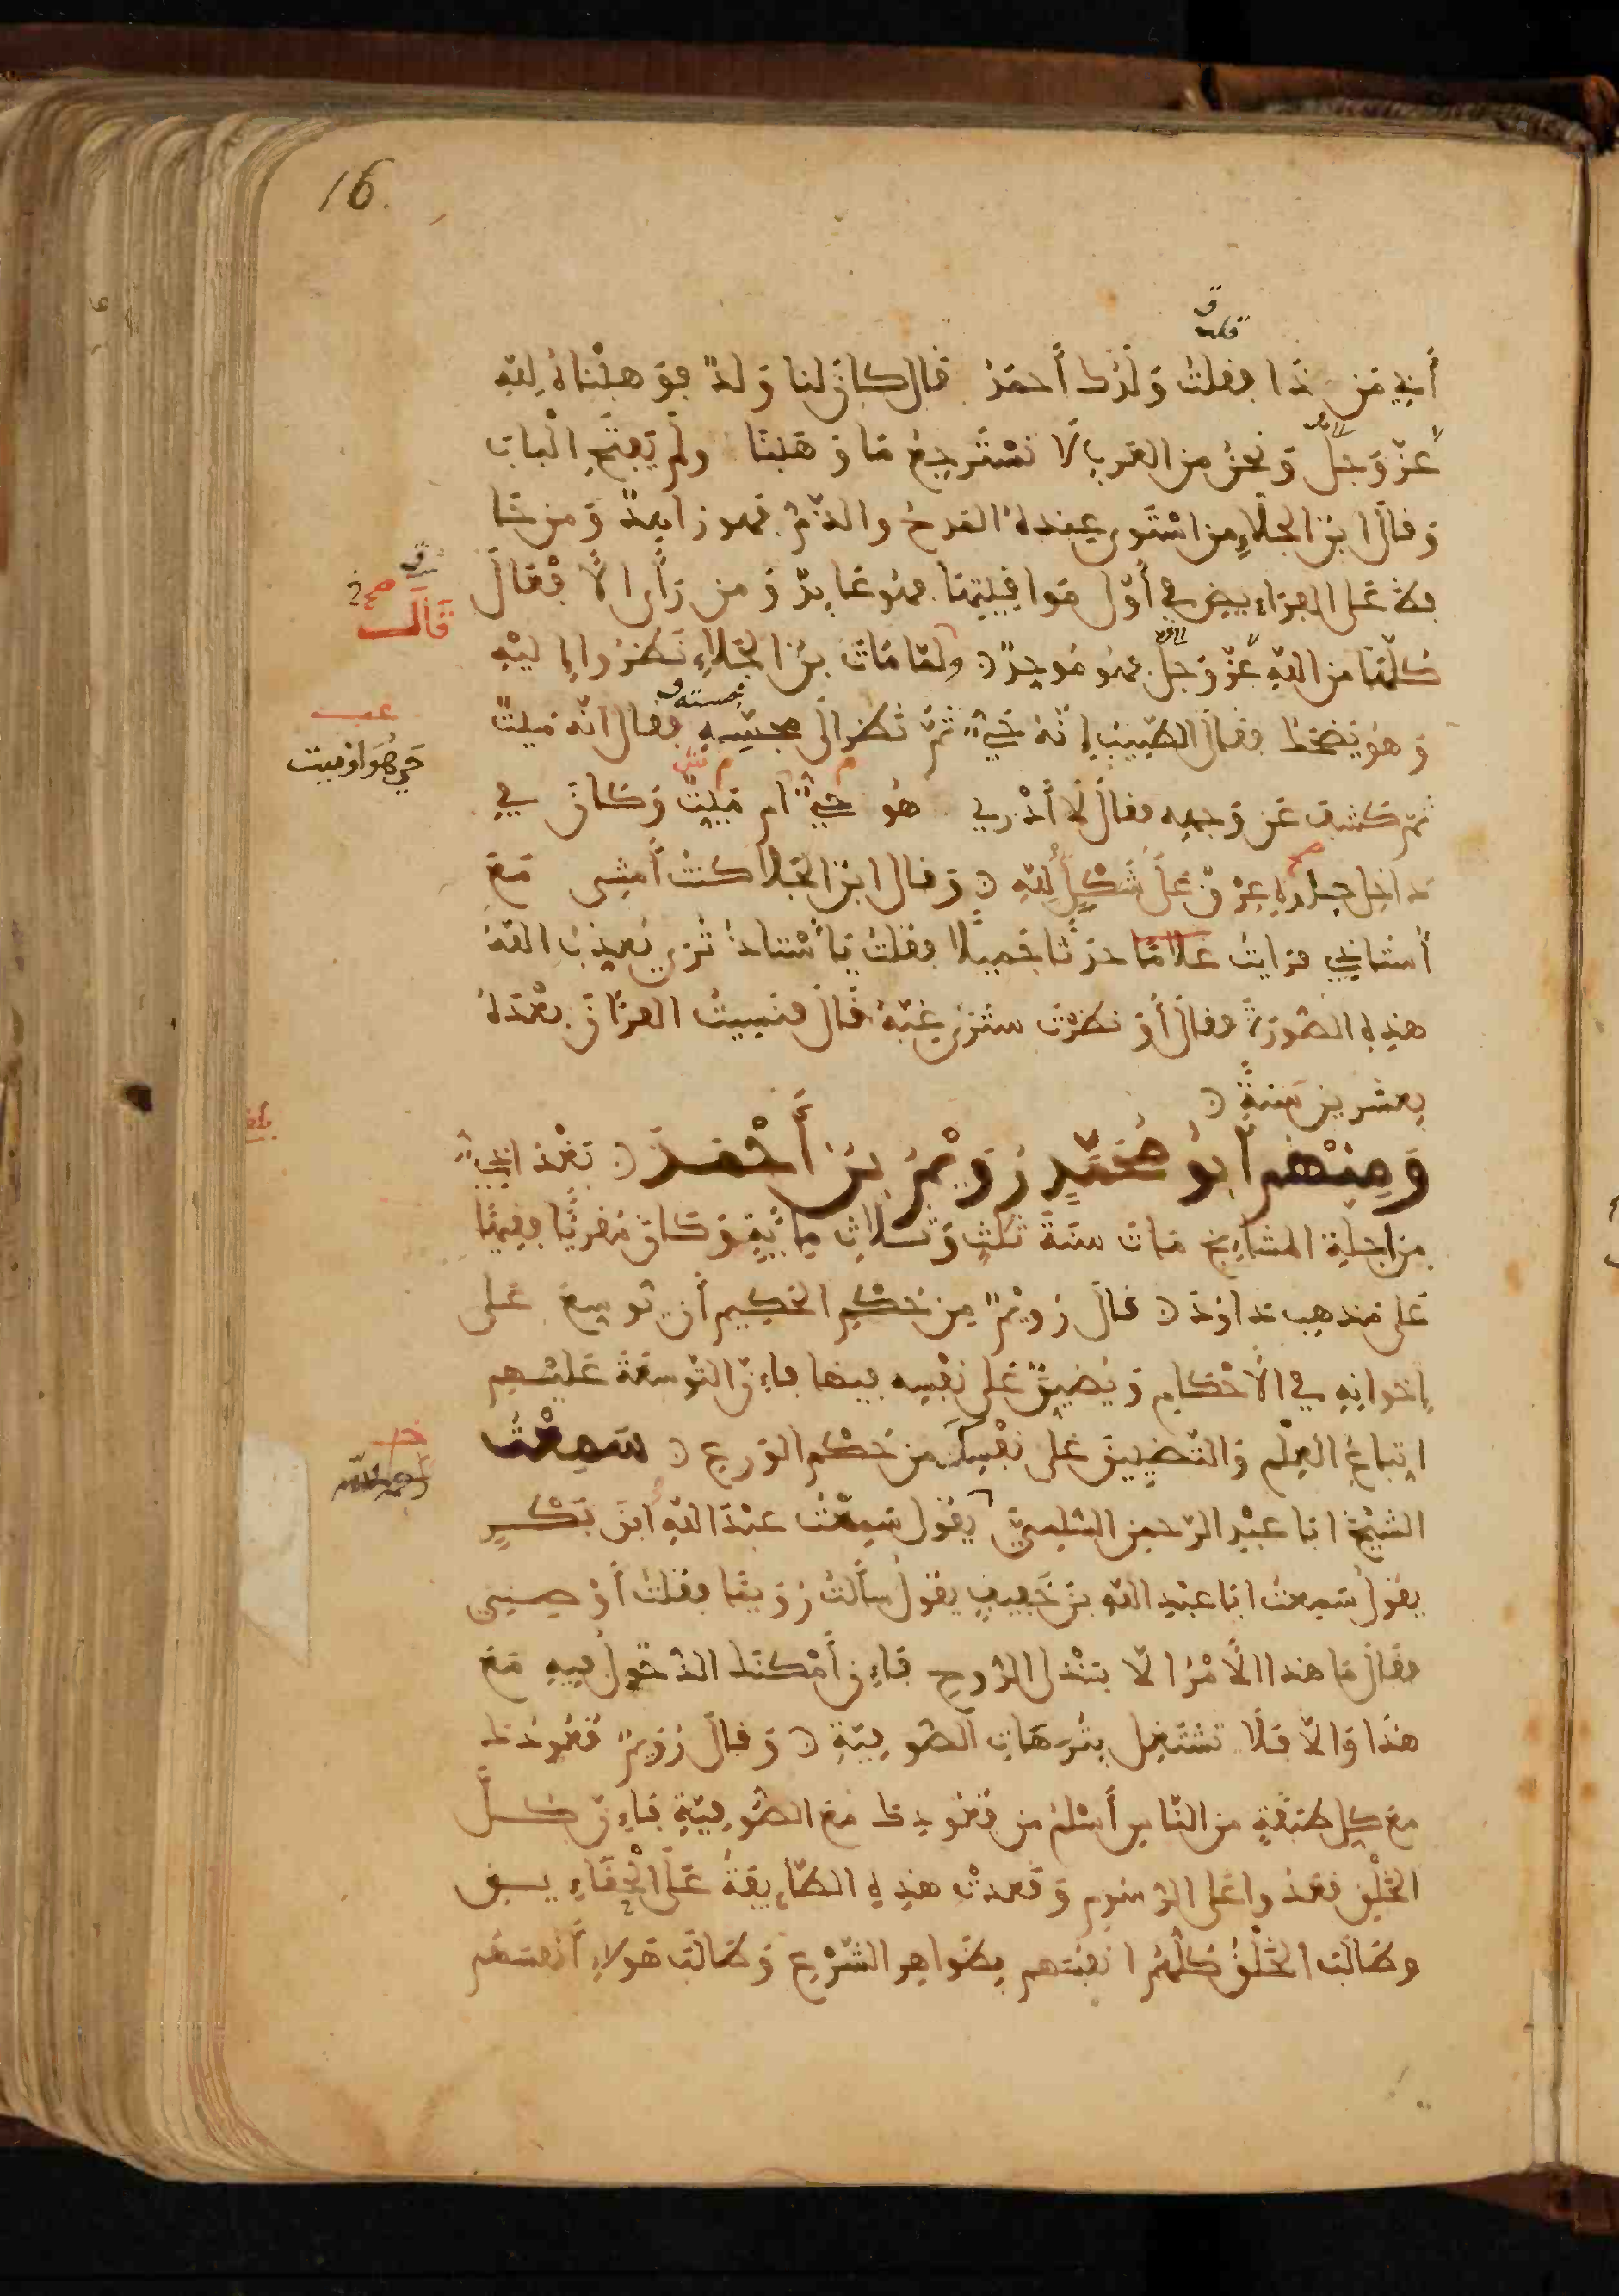 16.
قلت
أبي من ذا فقلت ولدك أحمد قال كان لنا ولد فوهبناه لله
عز وجل ونحن من العرب لا نسترجع ما وهبنا ولم يفتح الباب
وقال ابن الجلاء من استوى عنده المدح والذم فهو زاهد ومن حا
فظ على الفرائض في أول مواقيتها فهو عابد ومن رأى الأفعال
كلها من الله عز وجل فهو موحد ولما مات بن الجلاء نظروا إليه
وهو يضحك فقال الطبيب إنه حي ثم نظر الى مجسه فقال انه ميت
ثم كشف عن وجهه فقال لا أدري هو حي أم ميت وكان في
داخل جلده عرق على شكل لله وقال ابن الجلا كنت أمشي مع
أستاذي فرايت غلاما حدثا جميلا فقلت يا أستاذ ترى يعذب الله
هذه الصورة فقال أو نظرت سترى غبه قال فنسيت القران بعده
بعشرين سنة
ومنهم أبو محمد رويم بن أحمد بغدادي
من اجلة المشايخ مات سنة ثلث وثلاث مائية وكان مقريا فقيها
على مذهب داود قال رويم من حكم الحكيم أن توسع على
إخوانه في الأحكام ويضيق على نفسه فيها فإن التوسعة عليهم
اتباع العلم والتضييق على نفسك من حكم الورع سمعت
الشيخ ابا عبد الرحمن السلمي يقول سمعت عبد الله ابن بكير
يقول سمعت ابا عبد الله بن خفيف يقول سألت رويما فقلت أوصيني
فقال ما هذا الأمر الا ببذل الروح فإن أمكنك الدخول فيه مع
هذا والا فلا تشتغل بترهات الصوفية وقال رويم قعودك
مع كل طبقة من الناس أسلم من قعودك مع الصوفية فإن كل
الخلق قعدوا على الرسوم وقعدت هذه الطائفة على الحقايق
وطالب الخلق كلهم انفسهم بظواهر الشرع وطالب هولاء أنفسهم
قال
صح
حي هو او ميت